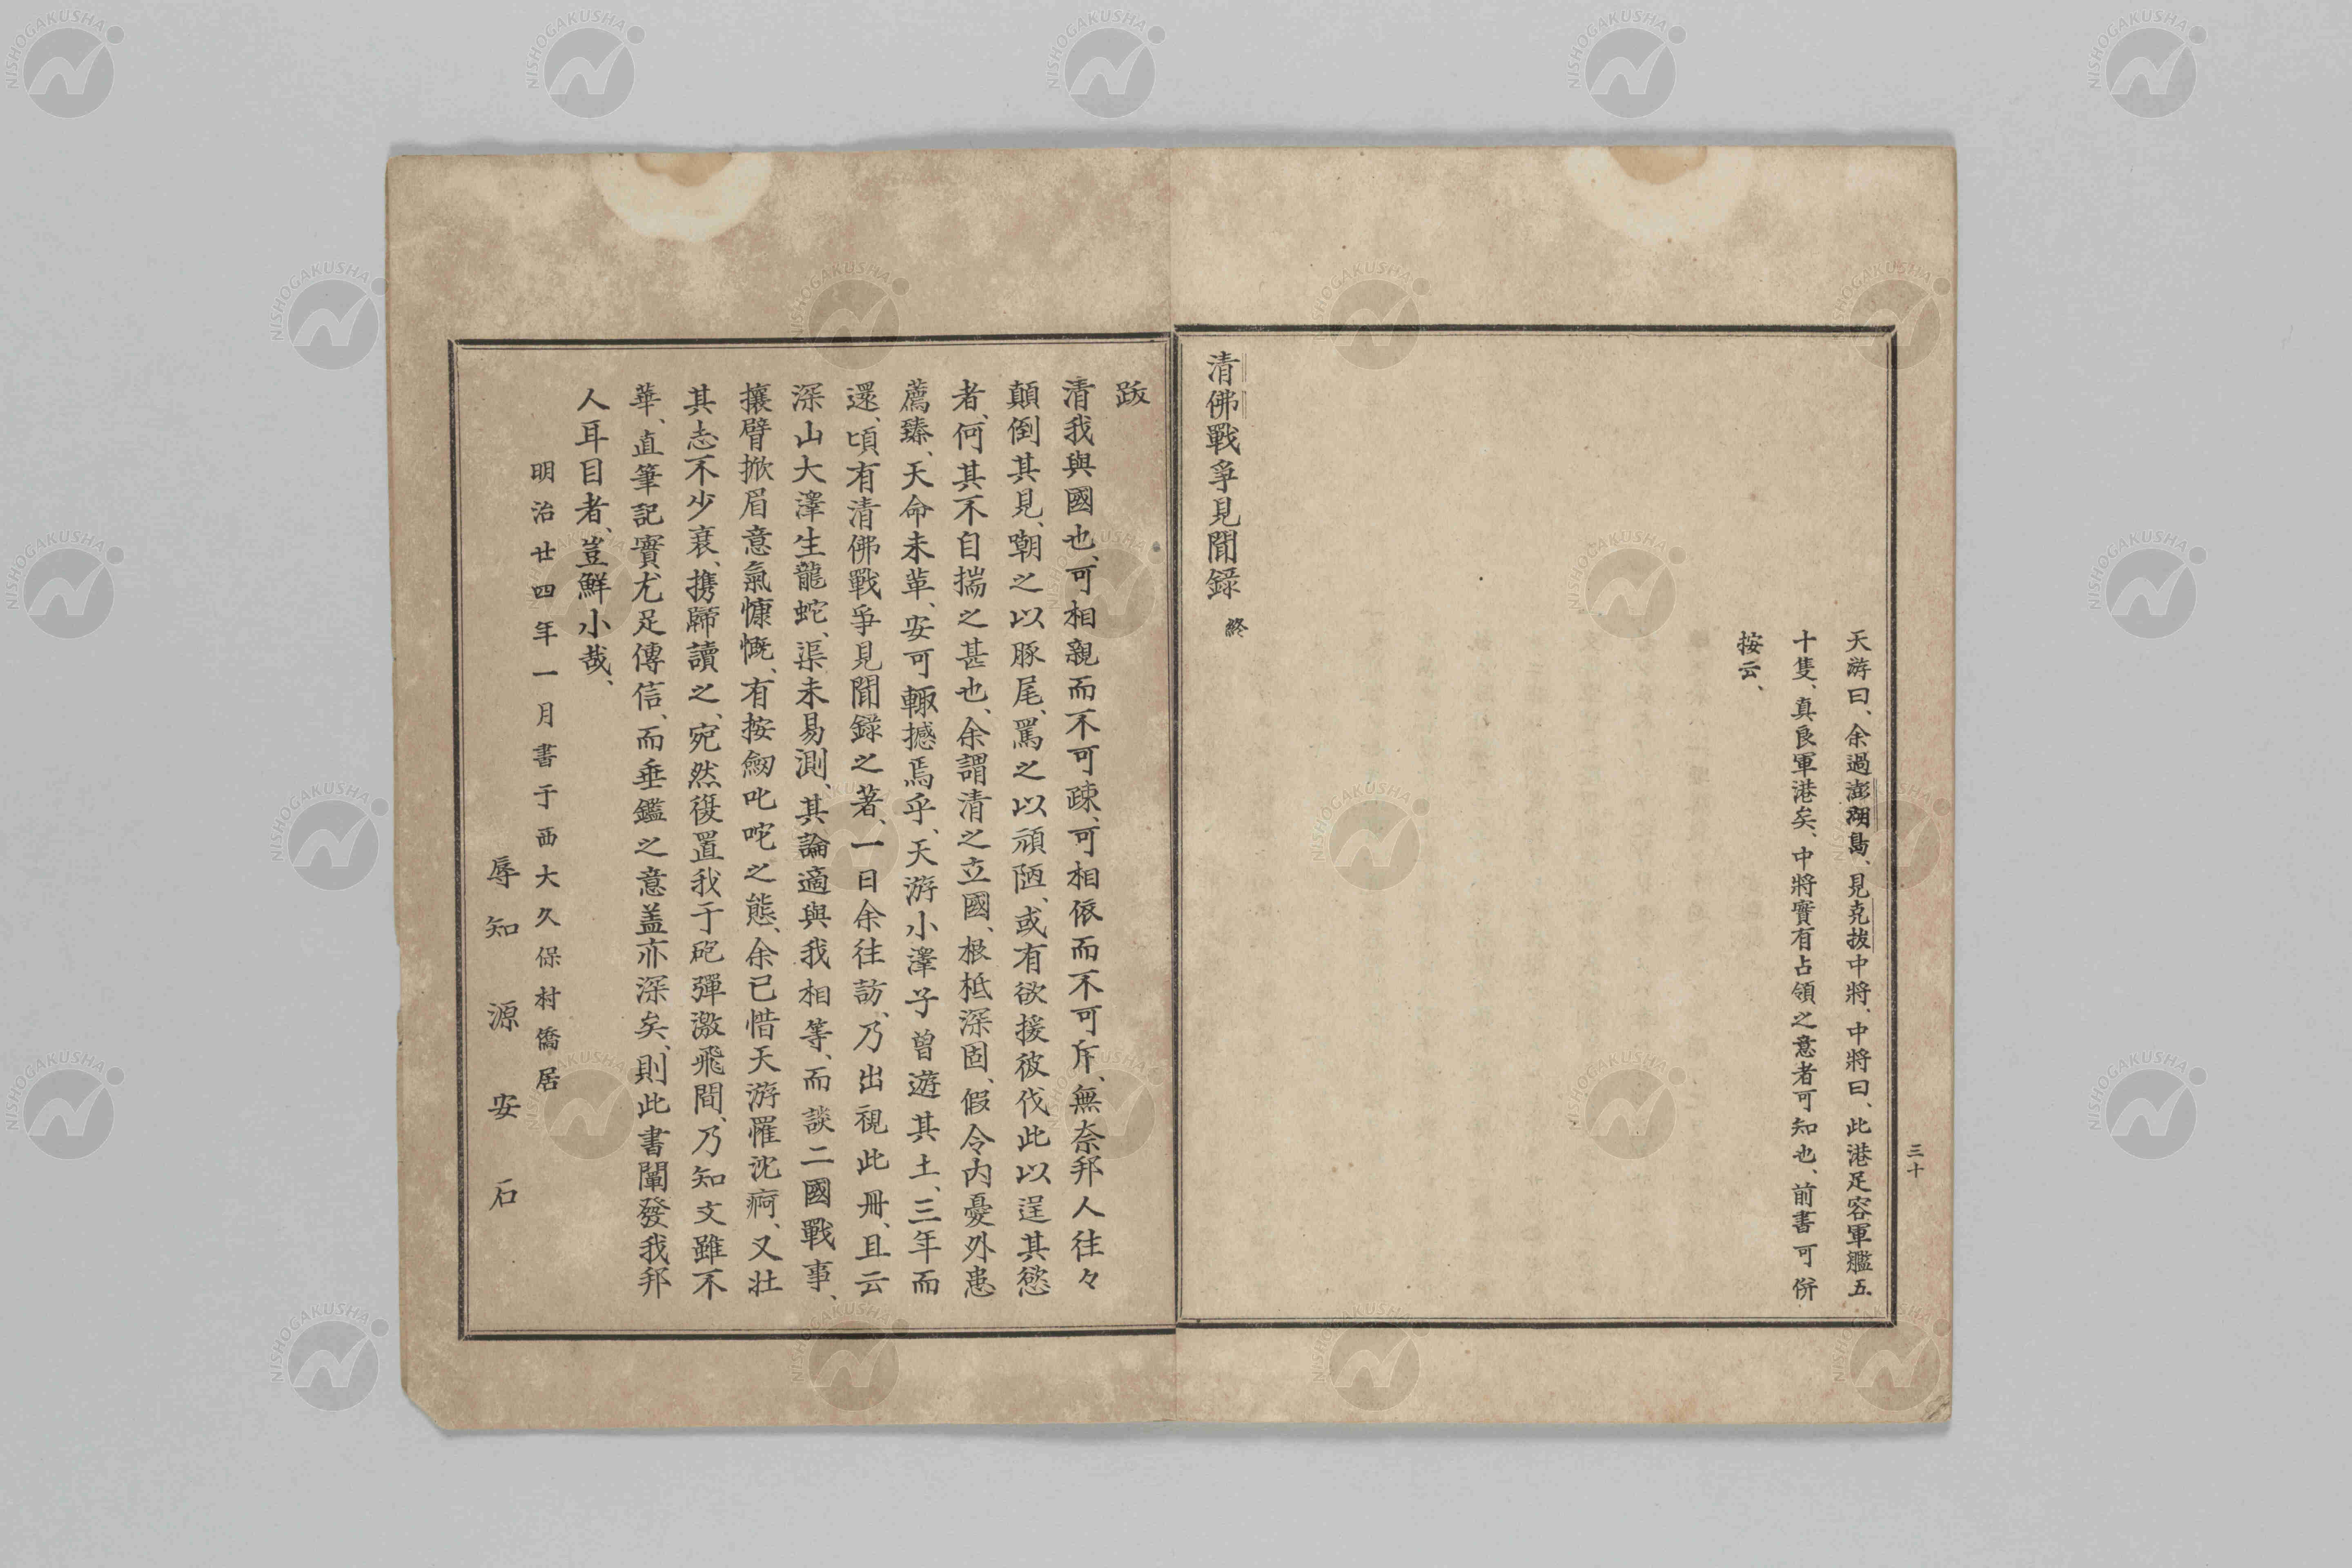 三十
天游曰、余過澎湖島、見克拔中將、中將曰、此港足容軍艦五
十隻、真良軍港矣、中將實有占領之意者可知也、前書可併
按云、
清佛戰爭見聞錄 終
跋
清我與國也、可相親而不可疎、可相依而不可斥、無奈邦人往々
顛倒其見、嘲之以豚尾、罵之以頑陋、或有欲援彼伐此以逞其慾
者、何其不自揣之甚也、余謂清之立國、根柢深固、假令內憂外患
薦臻、天命未革、安可輙撼焉乎、天游小澤子曾遊其土、三年而
還、頃有清佛戰爭見聞錄之著、一日余往訪、乃出視此冊、且云
深山大澤生龍蛇、渠未易測、其論適與我相等、而談二國戰事、
攘臂掀眉意氣慷慨、有按劒叱咤之態、余已惜天游罹沈痾、又壯
其志不少衰、携歸讀之、宛然復置我于砲彈激飛間、乃知文雖不
華、直筆記實尤足傳信、而垂鑑之意盖亦深矣、則此書闡發我邦
人耳目者、豈鮮小哉、
明治廿四年一月書于西大久保村僑居
辱知 源安石
NISHOGAKUSHA